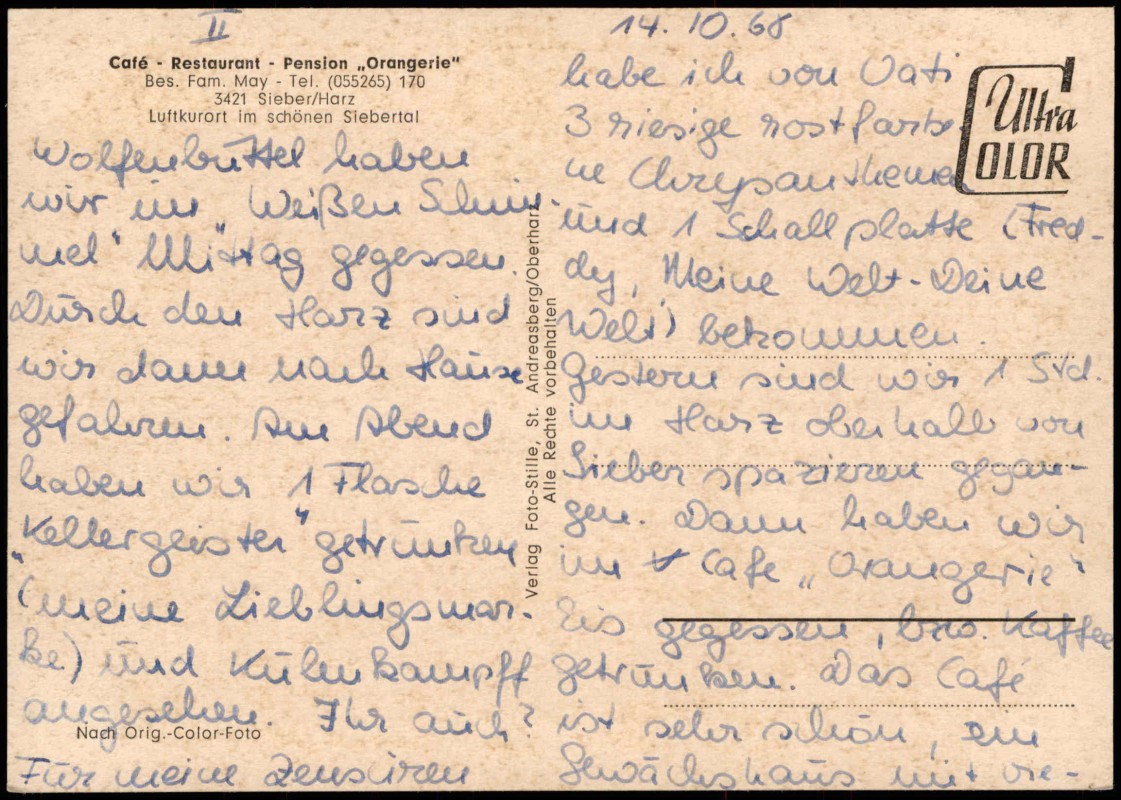 II
14.10.68
Café - Restaurant - Pension „Orangerie"
Bes. Fam. May - Tel. (055265) 170
3421 Sieber/Harz
Luftkurort im schönen Siebertal
Wolfenbüttel haben
wir im „Weißen Schim-
mel" Mittag gegessen.
Durch den Harz sind
wir dann nach Hause
gefahren. Am Abend
haben wir 1 Flasche
„Kellergeister" getrunken
(meine Lieblingsmar-
ke) und Kulenkampff
angesehen. Ihr auch?
Nach Orig.-Color-Foto
Für meine Zensuren
Verlag Foto-Stille, St. Andreasberg/Oberharz
Alle Rechte vorbehalten
Ultra
COLOR
habe ich von Vati
3 riesige rostfarbe-
ne Chrysanthemen
und 1 Schallplatte (Fred-
dy, Meine Welt-Deine
Welt) bekommen.
Gestern sind wir 1 Std.
im Harz oberhalb von
Sieber spazieren gegan-
gen. Dann haben wir
im Cafe „Orangerie"
Eis gegessen, bzw. Kaffee
getrunken. Das Café
ist sehr schön, ein
Gewächshaus mit vie-